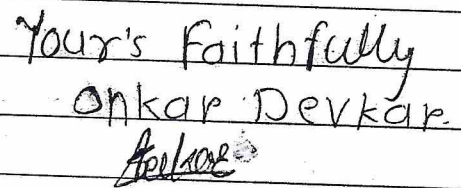 Your's Faithfully
Onkar Devkar.